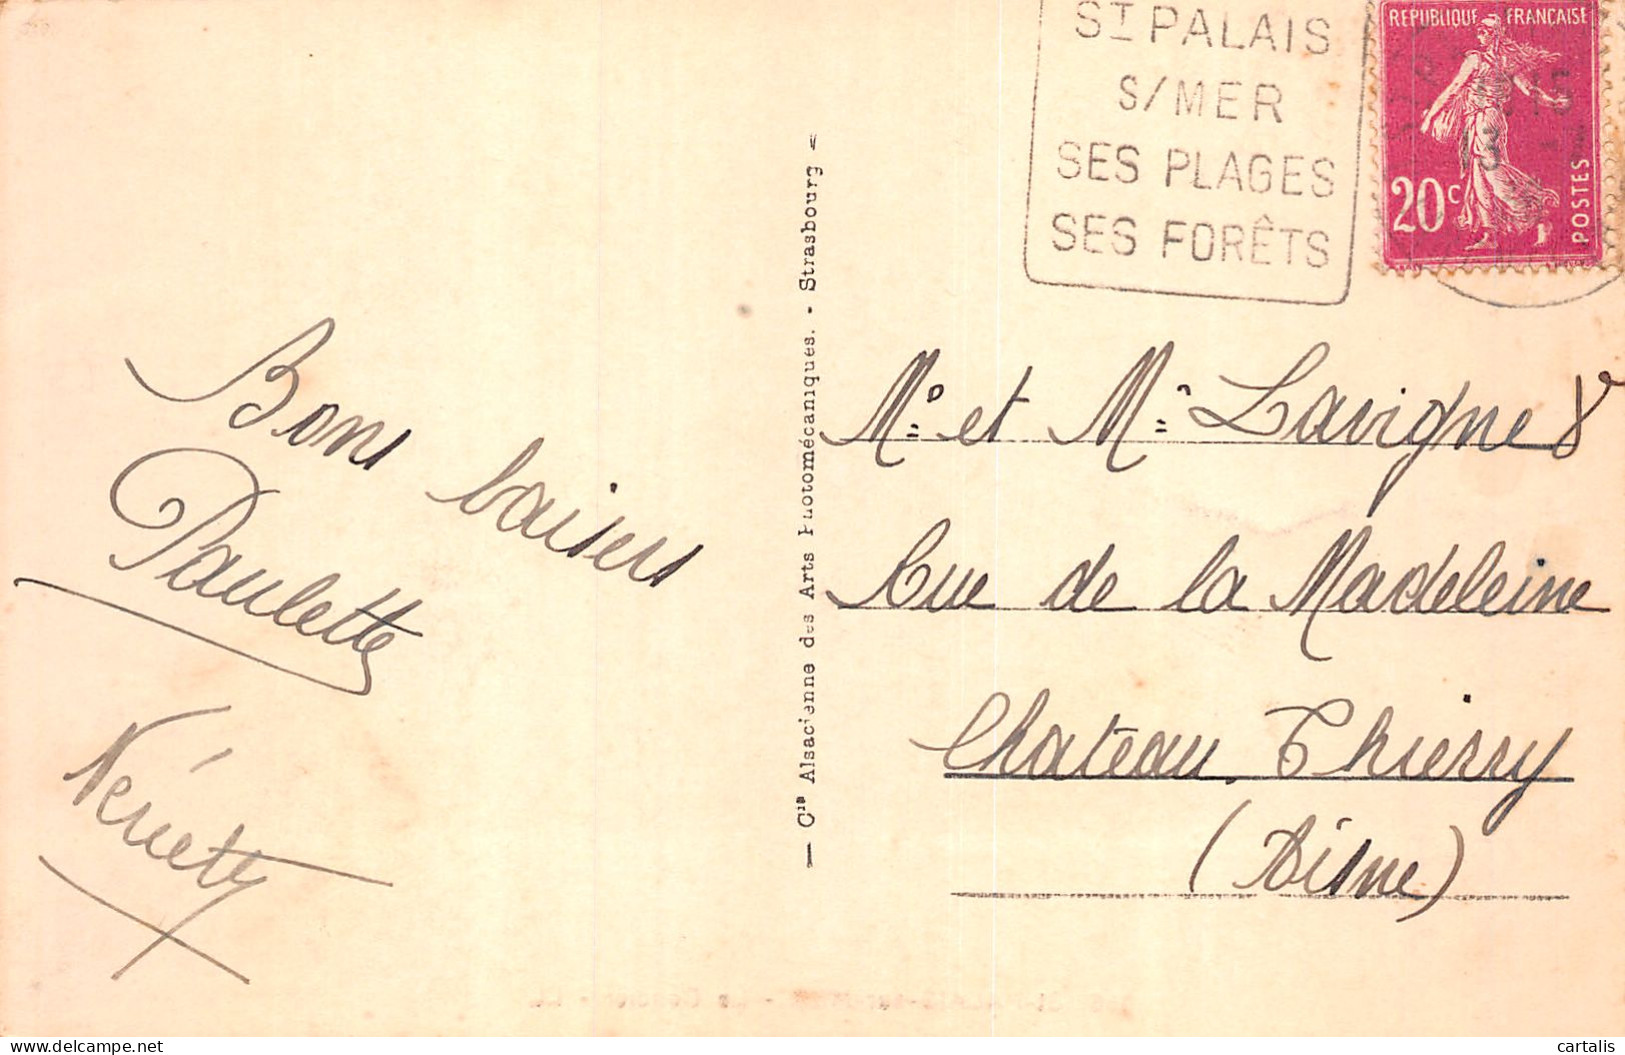 Bons baisers
Paulette
— Cie Alsacienne des Arts Photomécaniques. - Strasbourg —
ST PALAIS
S/MER
SES PLAGES
SES FORÊTS
REPUBLIQUE FRANÇAISE
20c
POSTES
Mr et Me Lavigne
Rue de la Madeleine
Chateau Thierry
(Aisne)
delcampe.net
cartalis